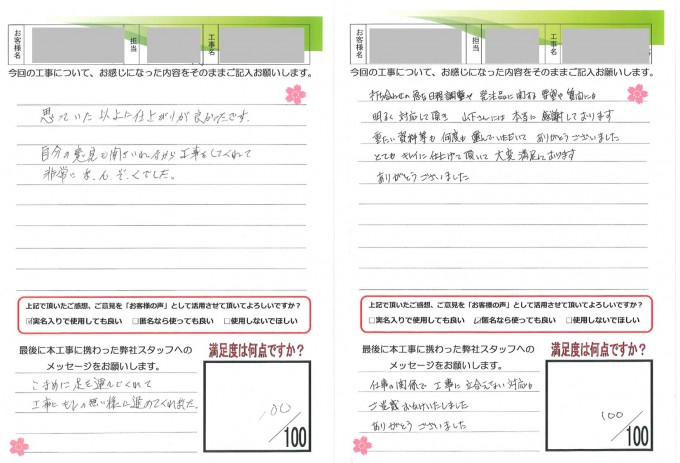 お客様名
担当
工事名
今回の工事について、お感じになった内容をそのままご記入お願いします。
思っていた以上に仕上がりが良かったです。
自分の意見も聞き入れながら工事をしてくれて
非常にまんぞくでした。
上記で頂いたご感想、ご意見を「お客様の声」として活用させて頂いてよろしいですか？
☑実名入りで使用しても良い □匿名なら使っても良い □使用しないでほしい
最後に本工事に携わった弊社スタッフへの
メッセージをお願いします。
こまめに足を運んでくれて
工事もこちらの思い様に進めてくれた
満足度は何点ですか？
100
/100
お客様名
担当
工事名
今回の工事について、お感じになった内容をそのままご記入お願いします。
打ち合わせの急な日程調整や 発注品に関する 要望や質問にも
明るく対応して頂き 山下さんには 本当に 感謝しております
重たい資料等も 何度も 運んでいただいて ありがとうございました
とても キレイに仕上げて頂いて 大変 満足しております
ありがとう ございました
上記で頂いたご感想、ご意見を「お客様の声」として活用させて頂いてよろしいですか？
□実名入りで使用しても良い ☑匿名なら使っても良い □使用しないでほしい
最後に本工事に携わった弊社スタッフへの
メッセージをお願いします。
仕事の関係で 工事に 立会えない 対応も
ご迷惑おかけいたしました
ありがとう ございました
満足度は何点ですか？
100
/100